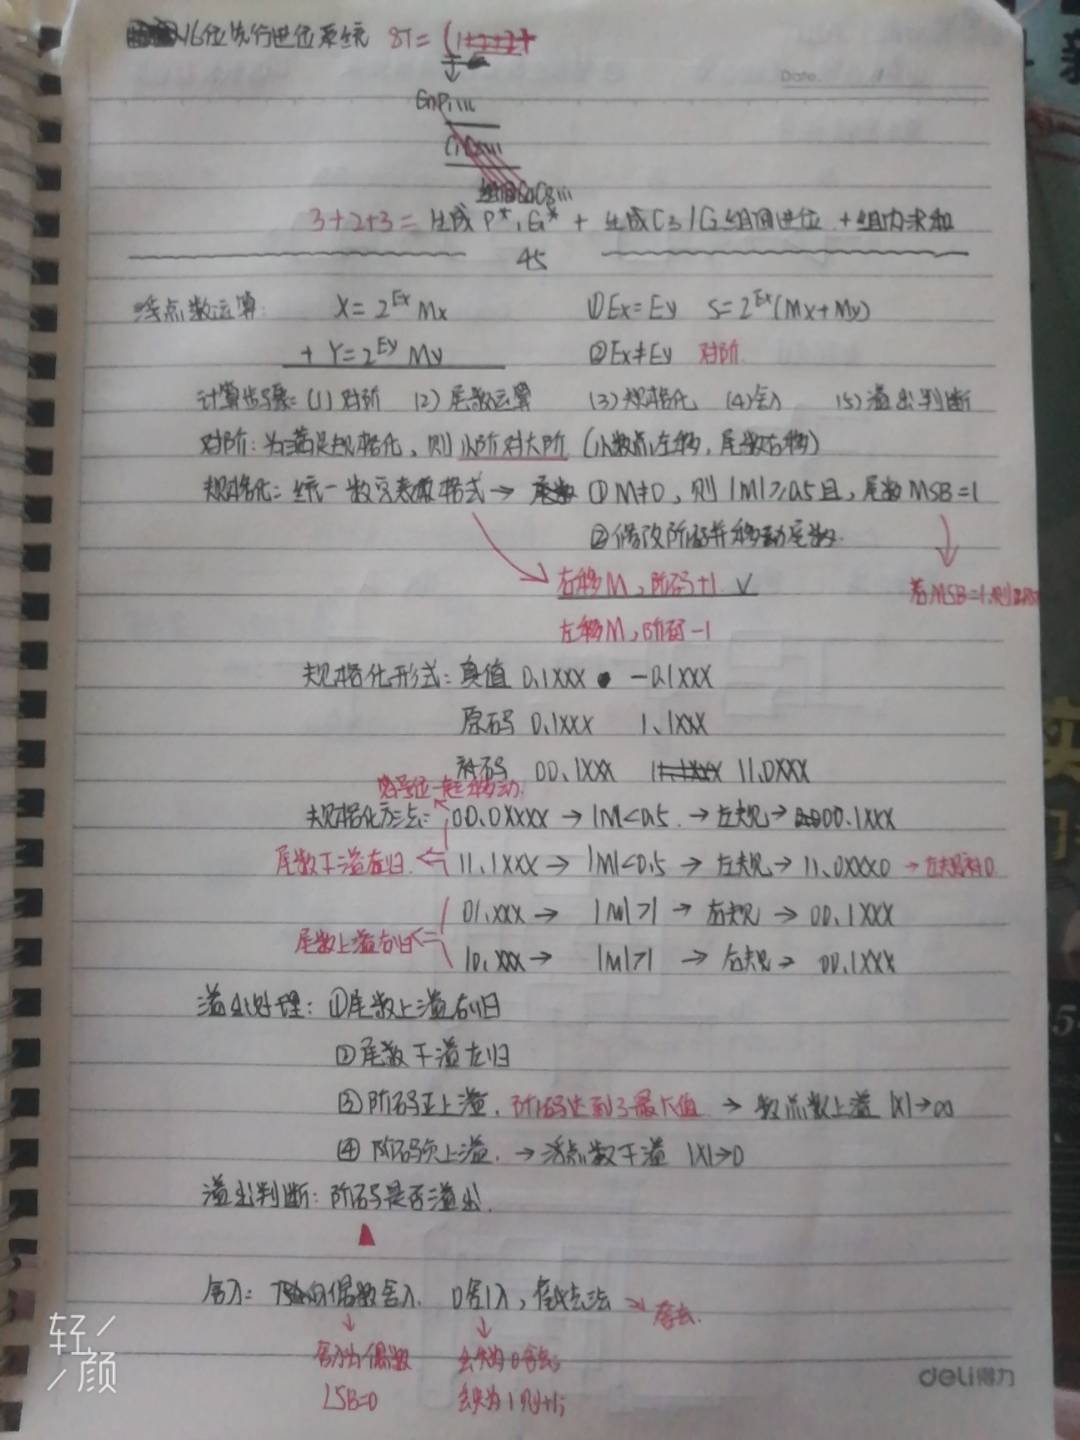 16位先行进位系统 8T=
Date.
GnPiii
3+2+3=生成P*,G* + 生成C3/G组间进位 +组内求和
45
浮点数运算: X=2^Ex Mx ①Ex=Ey S=2^Ex(Mx+My)
+ Y=2^Ey My ②Ex≠Ey 对阶
计算步骤:(1)对阶 (2)尾数运算 (3)规格化 (4)舍入 (5)溢出判断
对阶:为满足规格化,则小阶对大阶(小数点左移,尾数右移)
规格化:统一数字表格式→ 尾数①M≠0,则|M|≥0.5且,尾数MSB=1
②修改阶码并移动尾数.
右移M,阶码+1 √ 若MSB=1,则
左移M,阶码-1
规格化形式:真值 0.1XXX -0.1XXX
原码 0.1XXX 1.1XXX
补码 00.1XXX 11.0XXX
符号位一起移动.
规格化方法: 00.0XXXX→|M|<0.5→左规→00.1XXX
尾数下溢左归 11.1XXX→|M|<0.5→左规→11.0XXX0→左规补0
01.XXX→ |M|>1→右规→00.1XXX
尾数上溢右归 10.XXX→ |M|>1→右规→00.1XXX
溢出处理:①尾数上溢右归
②尾数下溢左归
③阶码正上溢,阶码达到了最大值→数点数上溢|X|→∞
④阶码负上溢.→浮点数下溢|X|→0
溢出判断:阶码是否溢出.
舍入: 偶数舍入. 0舍1入,截去法→舍去.
舍入为偶数 丢失为0舍去;
LSB=0 丢失为1则+1;
轻颜
deli得力